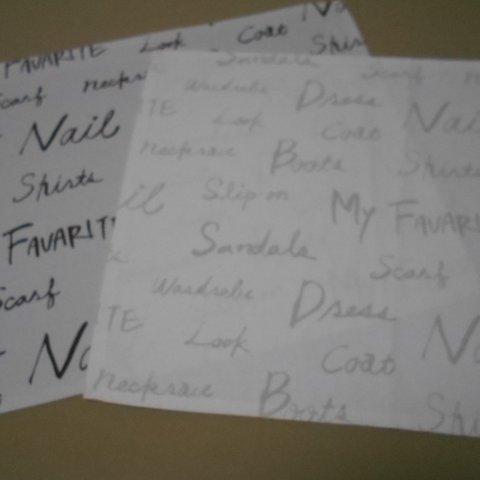 FAVARITE Look Coat Na
Scarf Neckrace Shirts
Nail
Shirts
FAVARIT
Scarf
Na
Sandals Scarf
Wardrobe Dress Nail
TE Look Coat
Neckrace Boots Shirts
il Slip-on My FAVARI
Sandals Scarf
Wardrobe Dress
TE Look Coat Na
Neckrace Boots Shi